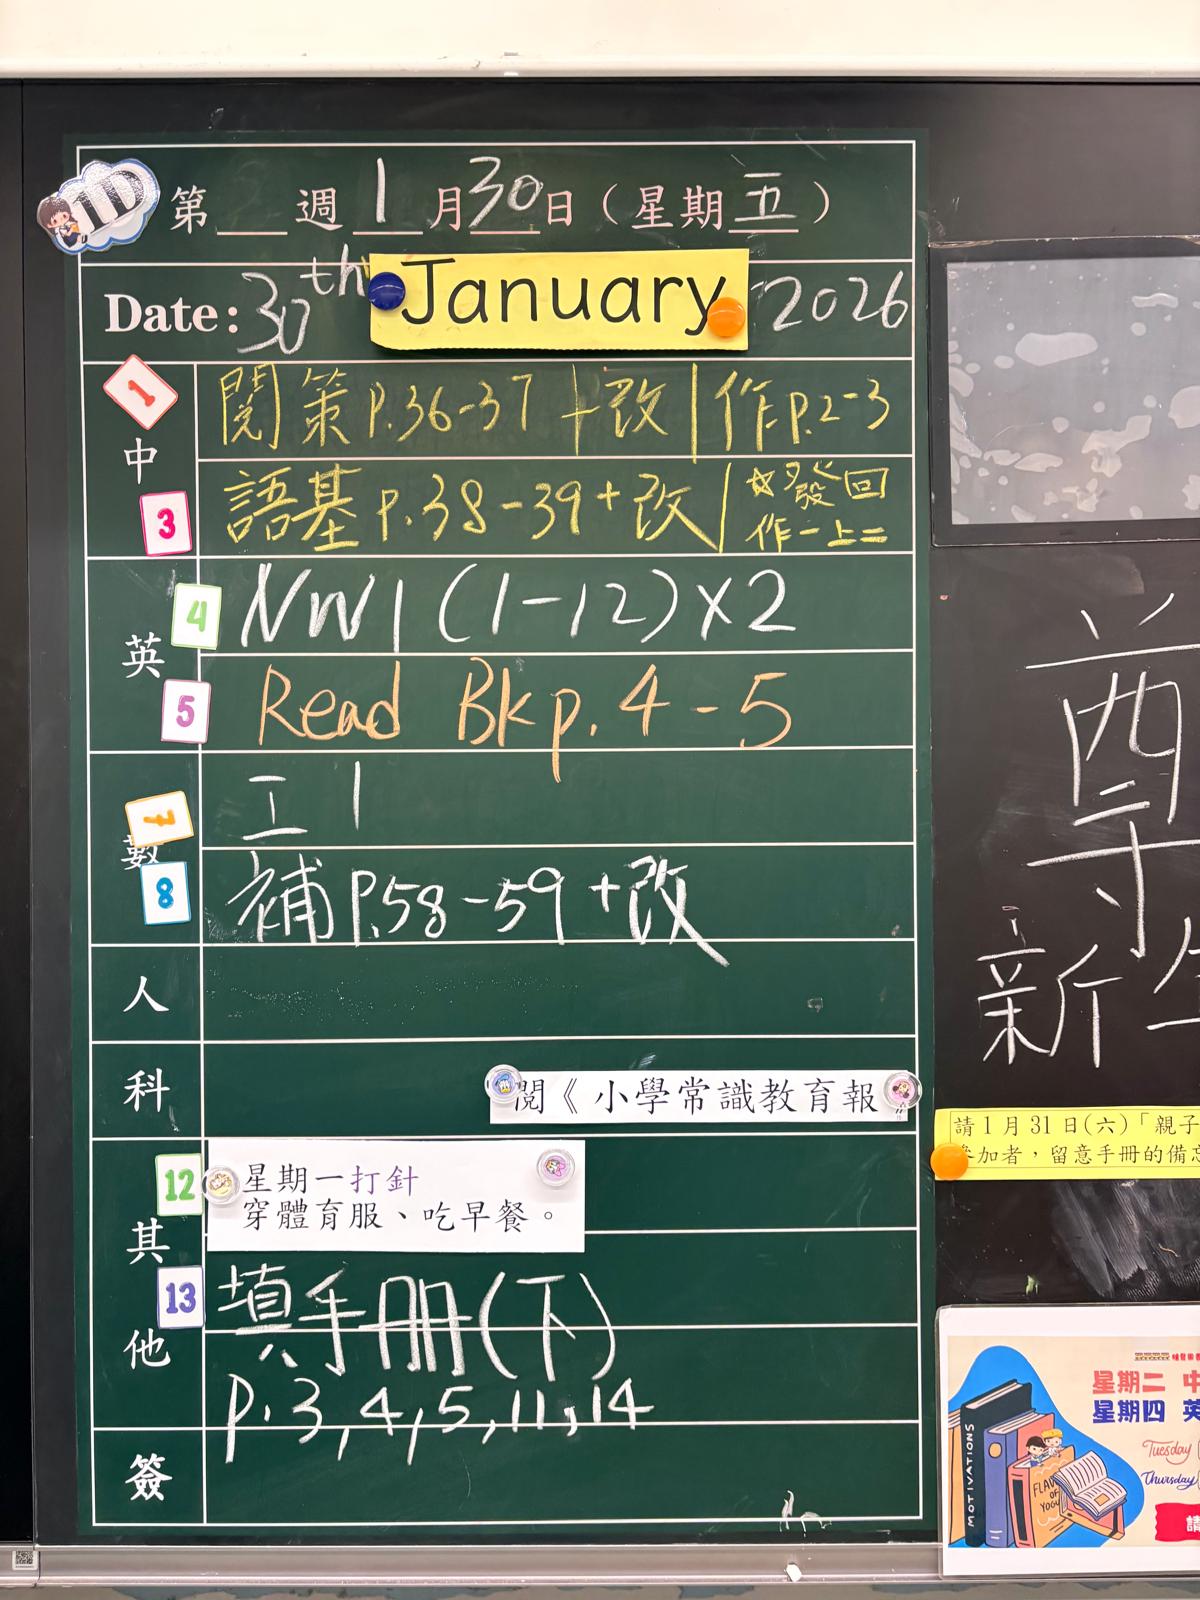 1D
第 週 1 月 30 日（星期 五 ）
Date: 30th January 2026
1
中
3
閱策 P.36-37 +改 | 作 P.2-3
語基 P.38-39 +改 | ☆發回
作一上二
英
4
NW1 (1-12)×2
5
Read Bk p. 4 - 5
數
7
工1
8
補 P.58-59 +改
人
科
閱《小學常識教育報
其
他
12
星期一打針
穿體育服、吃早餐。
13
填手冊(下)
P.3,4,5,11,14
簽
尊
新
請1月31日(六)「親子
參加者，留意手冊的備忘
星期二 中
星期四 英
Tuesday
Thursday
MOTIVATIONS
請